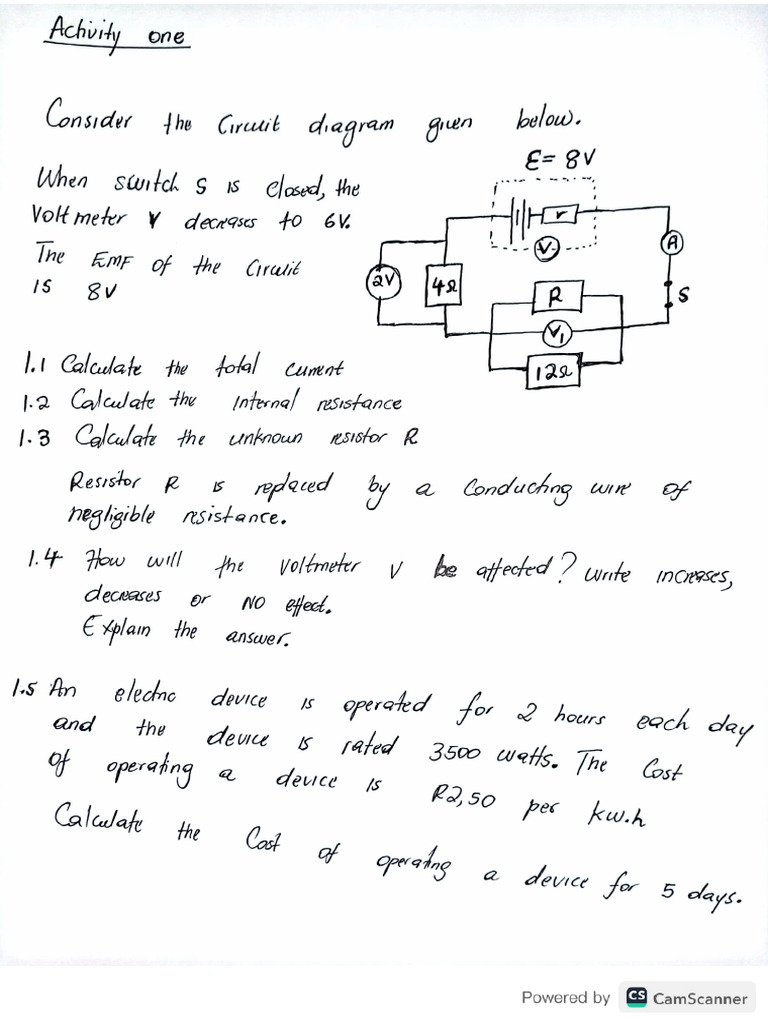 Activity one
Consider the circuit diagram given below.
ε = 8V
When switch S is closed, the
Voltmeter V decreases to 6V.
The EMF of the circuit
is 8V
r
V
A
2V
4Ω
R
S
V₁
12Ω
1.1 Calculate the total current
1.2 Calculate the internal resistance
1.3 Calculate the unknown resistor R
Resistor R is replaced by a conducting wire of
negligible resistance.
1.4 How will the voltmeter V be affected? write increases,
decreases or NO effect.
Explain the answer.
1.5 An electric device is operated for 2 hours each day
and the device is rated 3500 watts. The cost
of operating a device is R2,50 per kw.h
Calculate the cost of operating a device for 5 days.
Powered by CS CamScanner